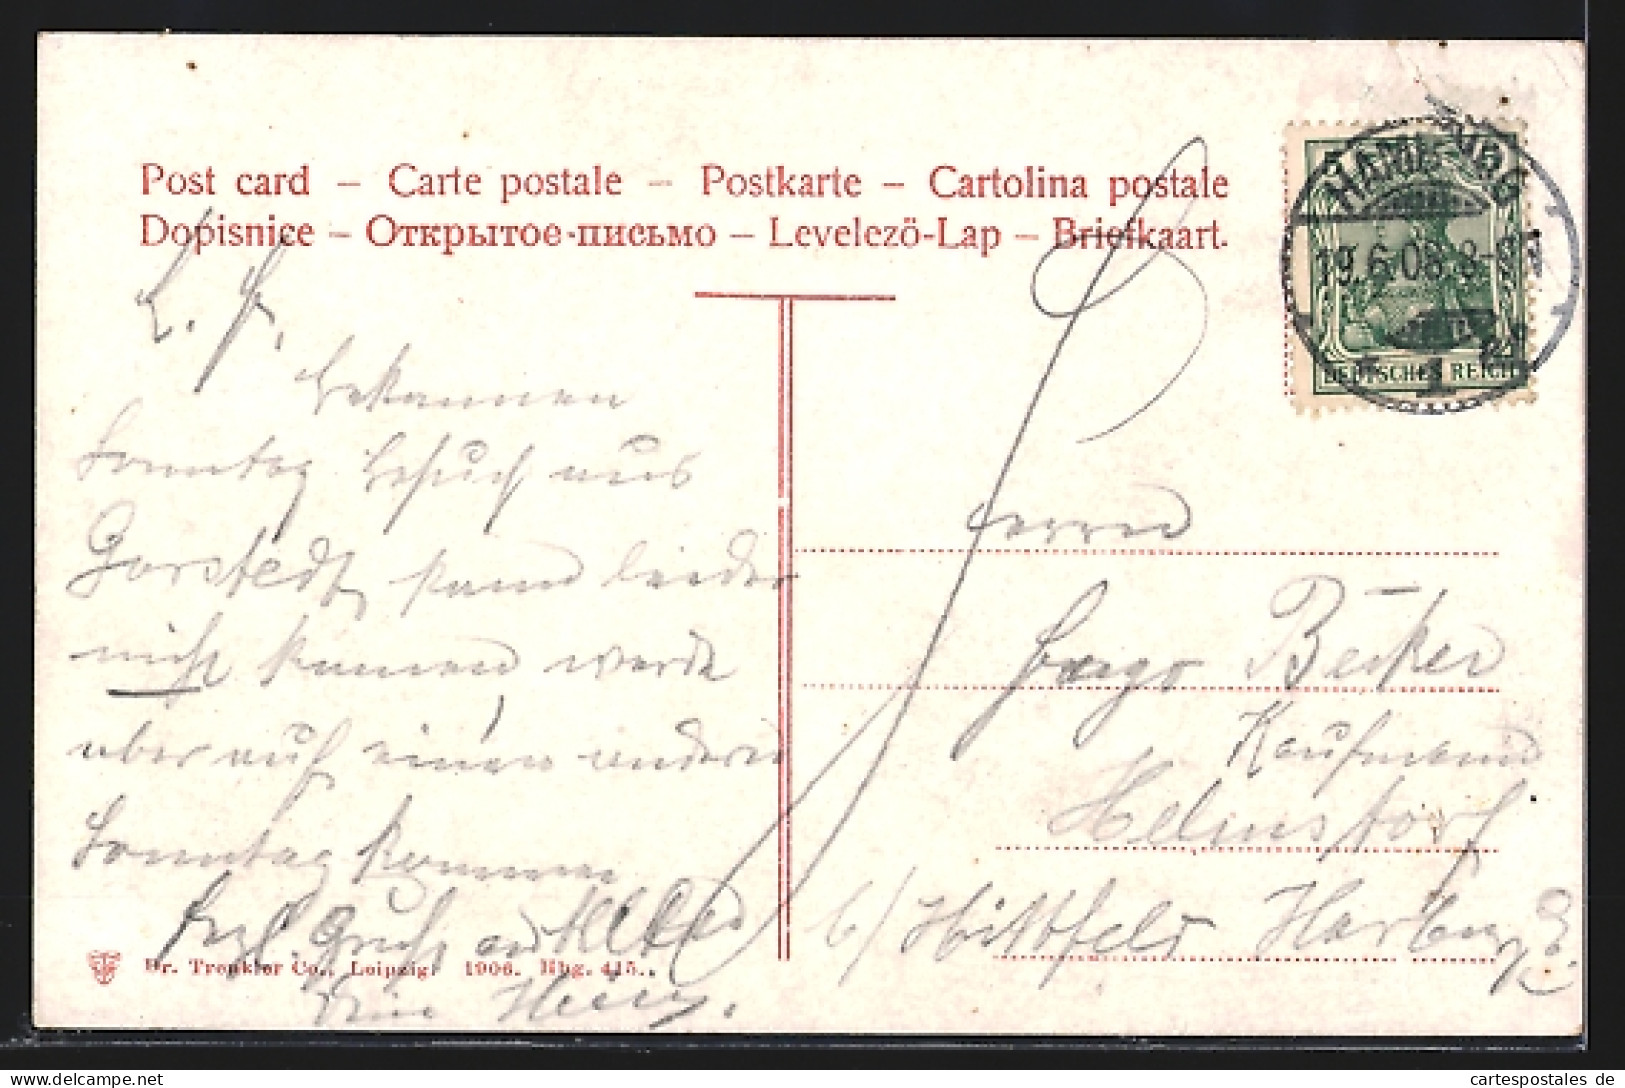 Post card – Carte postale – Postkarte – Cartolina postale
Dopisnice – Открытое-письмо – Levelező-Lap – Briefkaart.
HAMBURG
19.6.08.8-9N
1
5
DEUTSCHES REICH
L. F.
bekommen
Sonntag besuch aus
Garstedt, kann leider
nicht kommen werde
aber auf einen andern
Sonntag kommen
Herzl. Gruß an All
Dein
Herrn
Hugo Becker
Kaufmann
Helmstorf
b/ Hittfeld Harburg
Dr. Trenkler Co., Leipzig. 1906. Hbg. 415.
cartespostales de
delcampe.net